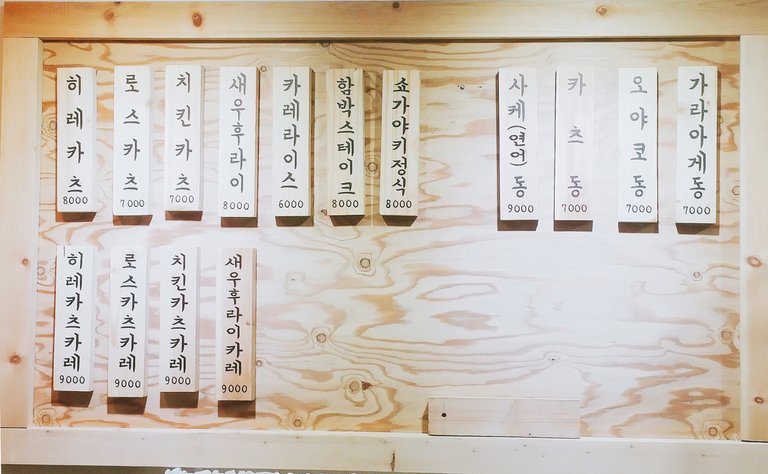 히레카츠
8000
로스카츠
7000
치킨카츠
7000
새우후라이
8000
카레라이스
6000
함박스테이크
8000
쇼가야키정식
8000
사케(연어)동
9000
카츠동
7000
오야코동
7000
가라아게동
7000
히레카츠카레
9000
로스카츠카레
9000
치킨카츠카레
9000
새우후라이카레
9000